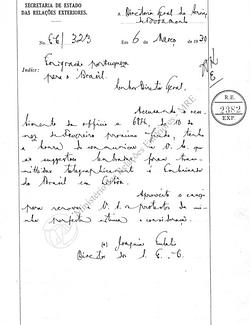 SECRETARIA DE ESTADO
DAS RELAÇÕES EXTERIORES.
a Directoria Geral do
No. 56/323
Em 6 de Março de 1930
Indice:
Emigração portugueza
para o Brasil.
Senhor Director Geral,
Accusando o rece-
bimento do officio n 6876, de 10 do
mez de Fevereiro proximo findo, tenho
a honra de communicar a V. S. que
as suggestões lembradas foram trans-
mittidas telegraphicamente à Embaixada
do Brasil em Lisboa.
Aproveito o ensejo
para renovar a V. S. os protestos da mi-
nha perfeita estima e consideração.
(a) Joaquim
Director do S. E. C.
R.E.
2382
EXP.